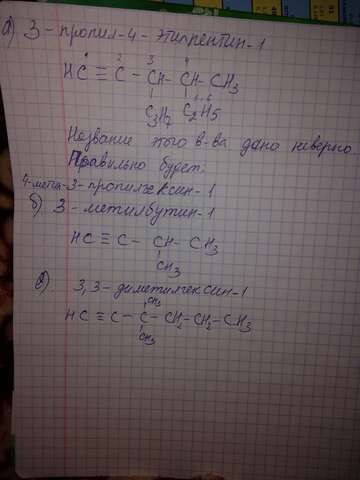 а) 3-пропил-4-этилпентин-1
1 2 3 4
HC ≡ C - CH - CH - CH3
5 6
C3H7 C2H5
Название этого в-ва дано неверно
Правильно будет:
4-метил-3-пропилгексин-1
б) 3-метилбутин-1
HC ≡ C - CH - CH3
CH3
в) 3,3-диметилгексин-1
CH3
HC ≡ C - C - CH2 - CH2 - CH3
CH3